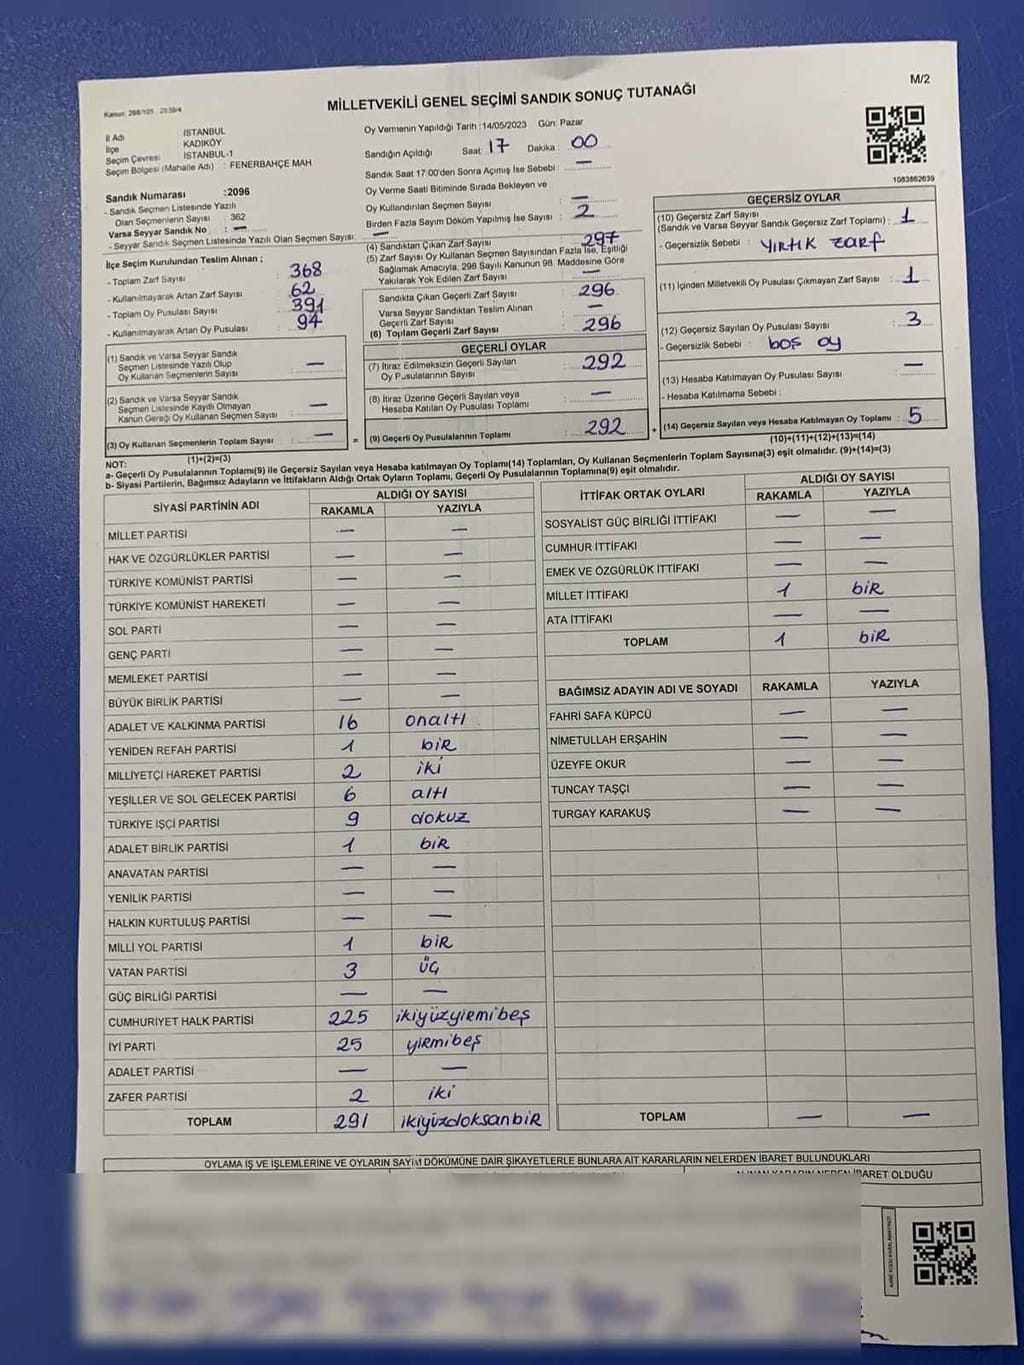 M/2
Kanun: 298/105
MİLLETVEKİLİ GENEL SEÇİMİ SANDIK SONUÇ TUTANAĞI
İl Adı : İSTANBUL
İlçe : KADIKÖY
Seçim Çevresi : İSTANBUL-1
Seçim Bölgesi (Mahalle Adı) : FENERBAHÇE MAH
Sandık Numarası :2096
- Sandık Seçmen Listesinde Yazılı
Olan Seçmenlerin Sayısı : 362
Varsa Seyyar Sandık No : —
- Seyyar Sandık Seçmen Listesinde Yazılı Olan Seçmen Sayısı: —
İlçe Seçim Kurulundan Teslim Alınan ;
- Toplam Zarf Sayısı : 368
- Kullanılmayarak Artan Zarf Sayısı : 62
- Toplam Oy Pusulası Sayısı : 391
- Kullanılmayarak Artan Oy Pusulası : 94
(1) Sandık ve Varsa Seyyar Sandık
Seçmen Listesinde Yazılı Olup
Oy Kullanan Seçmenlerin Sayısı : —
(2) Sandık ve Varsa Seyyar Sandık
Seçmen Listesinde Kayıtlı Olmayan
Kanun Gereği Oy Kullanan Seçmen Sayısı : —
(3) Oy Kullanan Seçmenlerin Toplam Sayısı : —
(1)+(2)=(3)
Oy Vermenin Yapıldığı Tarih :14/05/2023 Gün: Pazar
Sandığın Açıldığı Saat : 17 Dakika : 00
Sandık Saat 17:00'den Sonra Açılmış İse Sebebi : —
Oy Verme Saati Bitiminde Sırada Bekleyen ve
Oy Kullandırılan Seçmen Sayısı : —
Birden Fazla Sayım Döküm Yapılmış İse Sayısı : 2
(4) Sandıktan Çıkan Zarf Sayısı : 297
(5) Zarf Sayısı Oy Kullanan Seçmen Sayısından Fazla İse, Eşitliği
Sağlamak Amacıyla, 298 Sayılı Kanunun 98. Maddesine Göre
Yakılarak Yok Edilen Zarf Sayısı : —
Sandıkta Çıkan Geçerli Zarf Sayısı : 296
Varsa Seyyar Sandıktan Teslim Alınan
Geçerli Zarf Sayısı : —
(6) Toplam Geçerli Zarf Sayısı : 296
GEÇERLİ OYLAR
(7) İtiraz Edilmeksizin Geçerli Sayılan
Oy Pusulalarının Sayısı : 292
(8) İtiraz Üzerine Geçerli Sayılan veya
Hesaba Katılan Oy Pusulası Toplamı : —
= (9) Geçerli Oy Pusulalarının Toplamı : 292
1083862639
GEÇERSİZ OYLAR
(10) Geçersiz Zarf Sayısı
(Sandık ve Varsa Seyyar Sandık Geçersiz Zarf Toplamı) : 1
- Geçersizlik Sebebi : YIRTIK ZARF
(11) İçinden Milletvekili Oy Pusulası Çıkmayan Zarf Sayısı : 1
(12) Geçersiz Sayılan Oy Pusulası Sayısı : 3
- Geçersizlik Sebebi : boş oy
(13) Hesaba Katılmayan Oy Pusulası Sayısı : —
- Hesaba Katılmama Sebebi :
+ (14) Geçersiz Sayılan veya Hesaba Katılmayan Oy Toplamı : 5
(10)+(11)+(12)+(13)=(14)
NOT:
a- Geçerli Oy Pusulalarının Toplamı(9) ile Geçersiz Sayılan veya Hesaba katılmayan Oy Toplamı(14) Toplamları, Oy Kullanan Seçmenlerin Toplam Sayısına(3) eşit olmalıdır. (9)+(14)=(3)
b- Siyasi Partilerin, Bağımsız Adayların ve İttifakların Aldığı Ortak Oyların Toplamı, Geçerli Oy Pusulalarının Toplamına(9) eşit olmalıdır.
SİYASİ PARTİNİN ADI ALDIĞI OY SAYISI
RAKAMLA YAZIYLA
MİLLET PARTİSİ — —
HAK VE ÖZGÜRLÜKLER PARTİSİ — —
TÜRKİYE KOMÜNİST PARTİSİ — —
TÜRKİYE KOMÜNİST HAREKETİ — —
SOL PARTİ — —
GENÇ PARTİ — —
MEMLEKET PARTİSİ — —
BÜYÜK BİRLİK PARTİSİ — —
ADALET VE KALKINMA PARTİSİ 16 onaltı
YENİDEN REFAH PARTİSİ 1 bir
MİLLİYETÇİ HAREKET PARTİSİ 2 iki
YEŞİLLER VE SOL GELECEK PARTİSİ 6 altı
TÜRKİYE İŞÇİ PARTİSİ 9 dokuz
ADALET BİRLİK PARTİSİ 1 bir
ANAVATAN PARTİSİ — —
YENİLİK PARTİSİ — —
HALKIN KURTULUŞ PARTİSİ — —
MİLLİ YOL PARTİSİ 1 bir
VATAN PARTİSİ 3 üç
GÜÇ BİRLİĞİ PARTİSİ — —
CUMHURİYET HALK PARTİSİ 225 ikiyüzyirmibeş
İYİ PARTİ 25 yirmibeş
ADALET PARTİSİ — —
ZAFER PARTİSİ 2 iki
TOPLAM 291 ikiyüzdoksanbir
İTTİFAK ORTAK OYLARI ALDIĞI OY SAYISI
RAKAMLA YAZIYLA
SOSYALİST GÜÇ BİRLİĞİ İTTİFAKI — —
CUMHUR İTTİFAKI — —
EMEK VE ÖZGÜRLÜK İTTİFAKI — —
MİLLET İTTİFAKI 1 bir
ATA İTTİFAKI — —
TOPLAM 1 bir
BAĞIMSIZ ADAYIN ADI VE SOYADI RAKAMLA YAZIYLA
FAHRİ SAFA KÜPCÜ — —
NİMETULLAH ERŞAHİN — —
ÜZEYFE OKUR — —
TUNCAY TAŞÇI — —
TURGAY KARAKUŞ — —
TOPLAM — —
OYLAMA İŞ VE İŞLEMLERİNE VE OYLARIN SAYIM DÖKÜMÜNE DAİR ŞİKAYETLERLE BUNLARA AİT KARARLARIN NELERDEN İBARET BULUNDUKLARI
ALINAN KARARIN NEDEN İBARET OLDUĞU